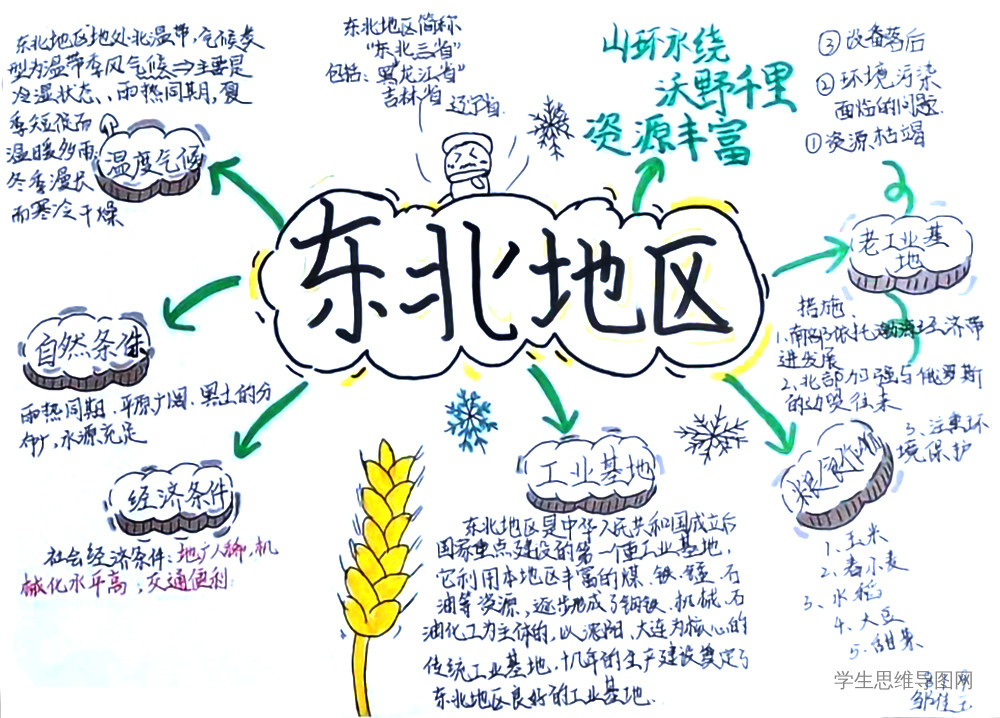 东北地区地处北温带,气候类
型为温带季风气候⇒主要是
冷湿状态、雨热同期,夏
季短促而
温暖多雨
冬季漫长
而寒冷干燥
温度气候
东北地区简称
"东北三省"
包括:黑龙江省
吉林省 辽宁省.
山环水绕
沃野千里
资源丰富
③设备落后
②环境污染
面临的问题.
①资源枯竭
东北地区
老工业基
地
措施.
1.南部依托渤海经济带
进发展
2.北部加强与俄罗斯
的边贸往来
3、注重环
境保护
自然条件
雨热同期、平原广阔、黑土的分
布广,水源充足
经济条件
社会经济条件:地广人稀,机
械化水平高;交通便利
工业基地
东北地区是中华人民共和国成立后
国家重点建设的第一个重工业基地,
它利用本地区丰富的煤、铁、锰、石
油等资源,逐步形成了钢铁、机械、石
油化工为主体的,以沈阳、大连为核心的
传统工业基地,十几年的生产建设奠定了
东北地区良好的工业基地.
粮食作物
1、玉米
2、春小麦
3、水稻
4、大豆
5、甜菜
学生思维导图网